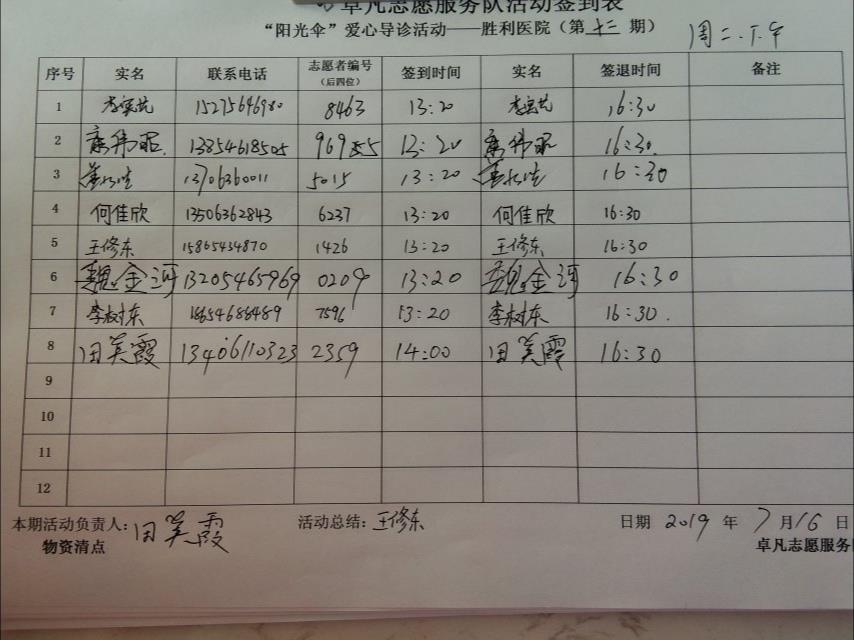 卓凡志愿服务队活动签到表
“阳光伞”爱心导诊活动——胜利医院（第十二期） 周二.下午
序号 实名 联系电话 志愿者编号（后四位） 签到时间 实名 签退时间 备注
1 15275646980 8463 13:20 16:30
2 13854618505 96955 13:20 16:30.
3 13706360011 5015 13:20 16:30
4 何佳欣 13506362843 6237 13:20 何佳欣 16:30
5 王修东 15865434870 1426 13:20 王修东 16:30
6 魏金河 13205465969 0209 13:20 魏金河 16:30
7 李树东 18654688489 7596 13:20 李树东 16:30.
8 田美霞 13406110323 2359 14:00 田美霞 16:30
9
10
11
12
本期活动负责人：田美霞 活动总结：王修东 日期 2019 年 7 月 16 日
物资清点 卓凡志愿服务